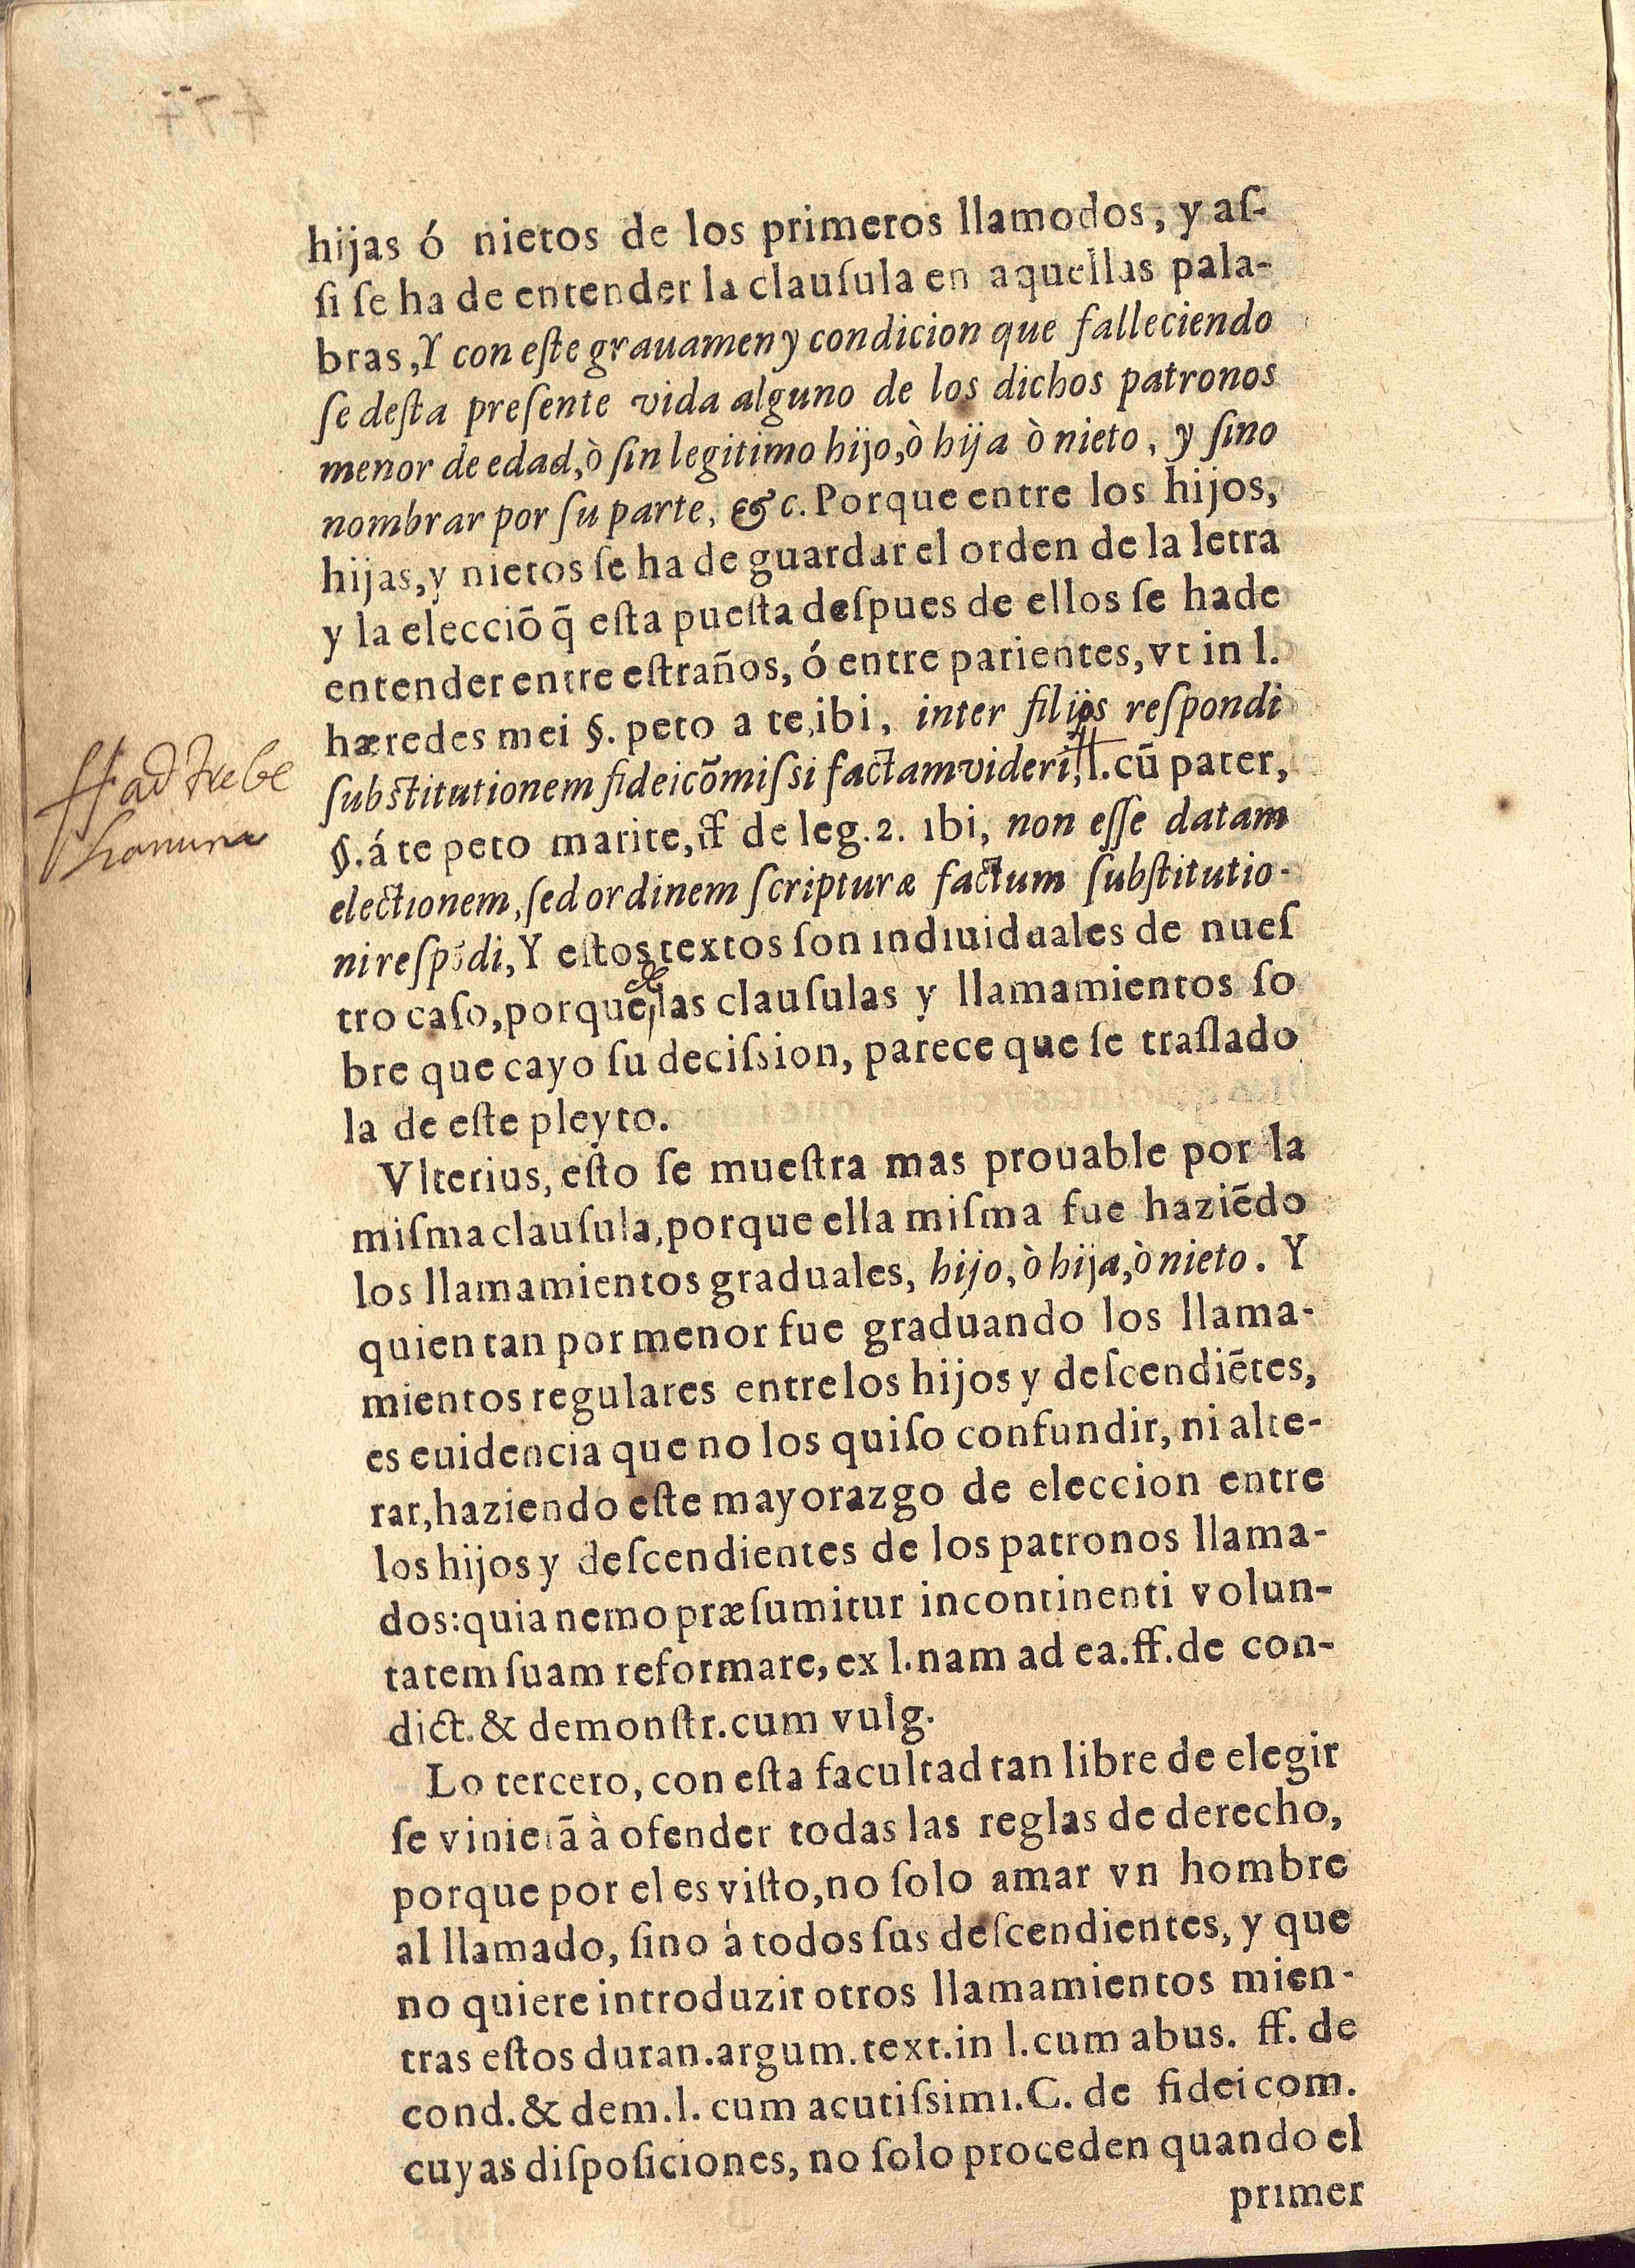 hijas ó nietos de los primeros llamodos, y aſ-
ſi ſe ha de entender la clauſula en aquellas pala-
bras, Y con eſte grauamen y condicion que falleciendo
ſe deſta preſente vida alguno de los dichos patronos
menor de edad, ò ſin legitimo hijo, ò hija ò nieto, y ſino
nombrar por ſu parte, &c. Porque entre los hijos,
hijas, y nietos ſe ha de guardar el orden de la letra
y la elecciõ q̃ eſta pueſta deſpues de ellos ſe hade
entender entre eſtraños, ó entre parientes, vt in l.
hæredes mei §. peto a te, ibi, inter filijs reſpondi
ff ad trebe
ſubſtitutionem fideicõmiſsi factam videri, l. cũ pater,
lianum
§. á te peto marite, ff de leg. 2. ibi, non eſſe datam
electionem, ſed ordinem ſcripturæ factum ſubſtitutio-
ni reſpõdi, Y eſtos textos ſon indiuiduales de nueſ
de
tro caſo, porque las clauſulas y llamamientos ſo
bre que cayo ſu deciſsion, parece que ſe traſlado
la de eſte pleyto.
Vlterius, eſto ſe mueſtra mas prouable por la
miſma clauſula, porque ella miſma fue haziẽdo
los llamamientos graduales, hijo, ò hija, ò nieto. Y
quien tan por menor fue graduando los llama-
mientos regulares entre los hijos y deſcendiẽtes,
es euidencia que no los quiſo confundir, ni alte-
rar, haziendo eſte mayorazgo de eleccion entre
los hijos y deſcendientes de los patronos llama-
dos: quia nemo præſumitur incontinenti volun-
tatem ſuam reformare, ex l. nam ad ea. ff. de con-
dict. & demonſtr. cum vulg.
Lo tercero, con eſta facultad tan libre de elegir
ſe vinierã à ofender todas las reglas de derecho,
porque por el es viſto, no ſolo amar vn hombre
al llamado, ſino à todos ſus deſcendientes, y que
no quiere introduzir otros llamamientos mien-
tras eſtos duran. argum. text. in l. cum abus. ff. de
cond. & dem. l. cum acutiſsimi. C. de fideicom.
cuyas diſpoſiciones, no ſolo proceden quando el
primer